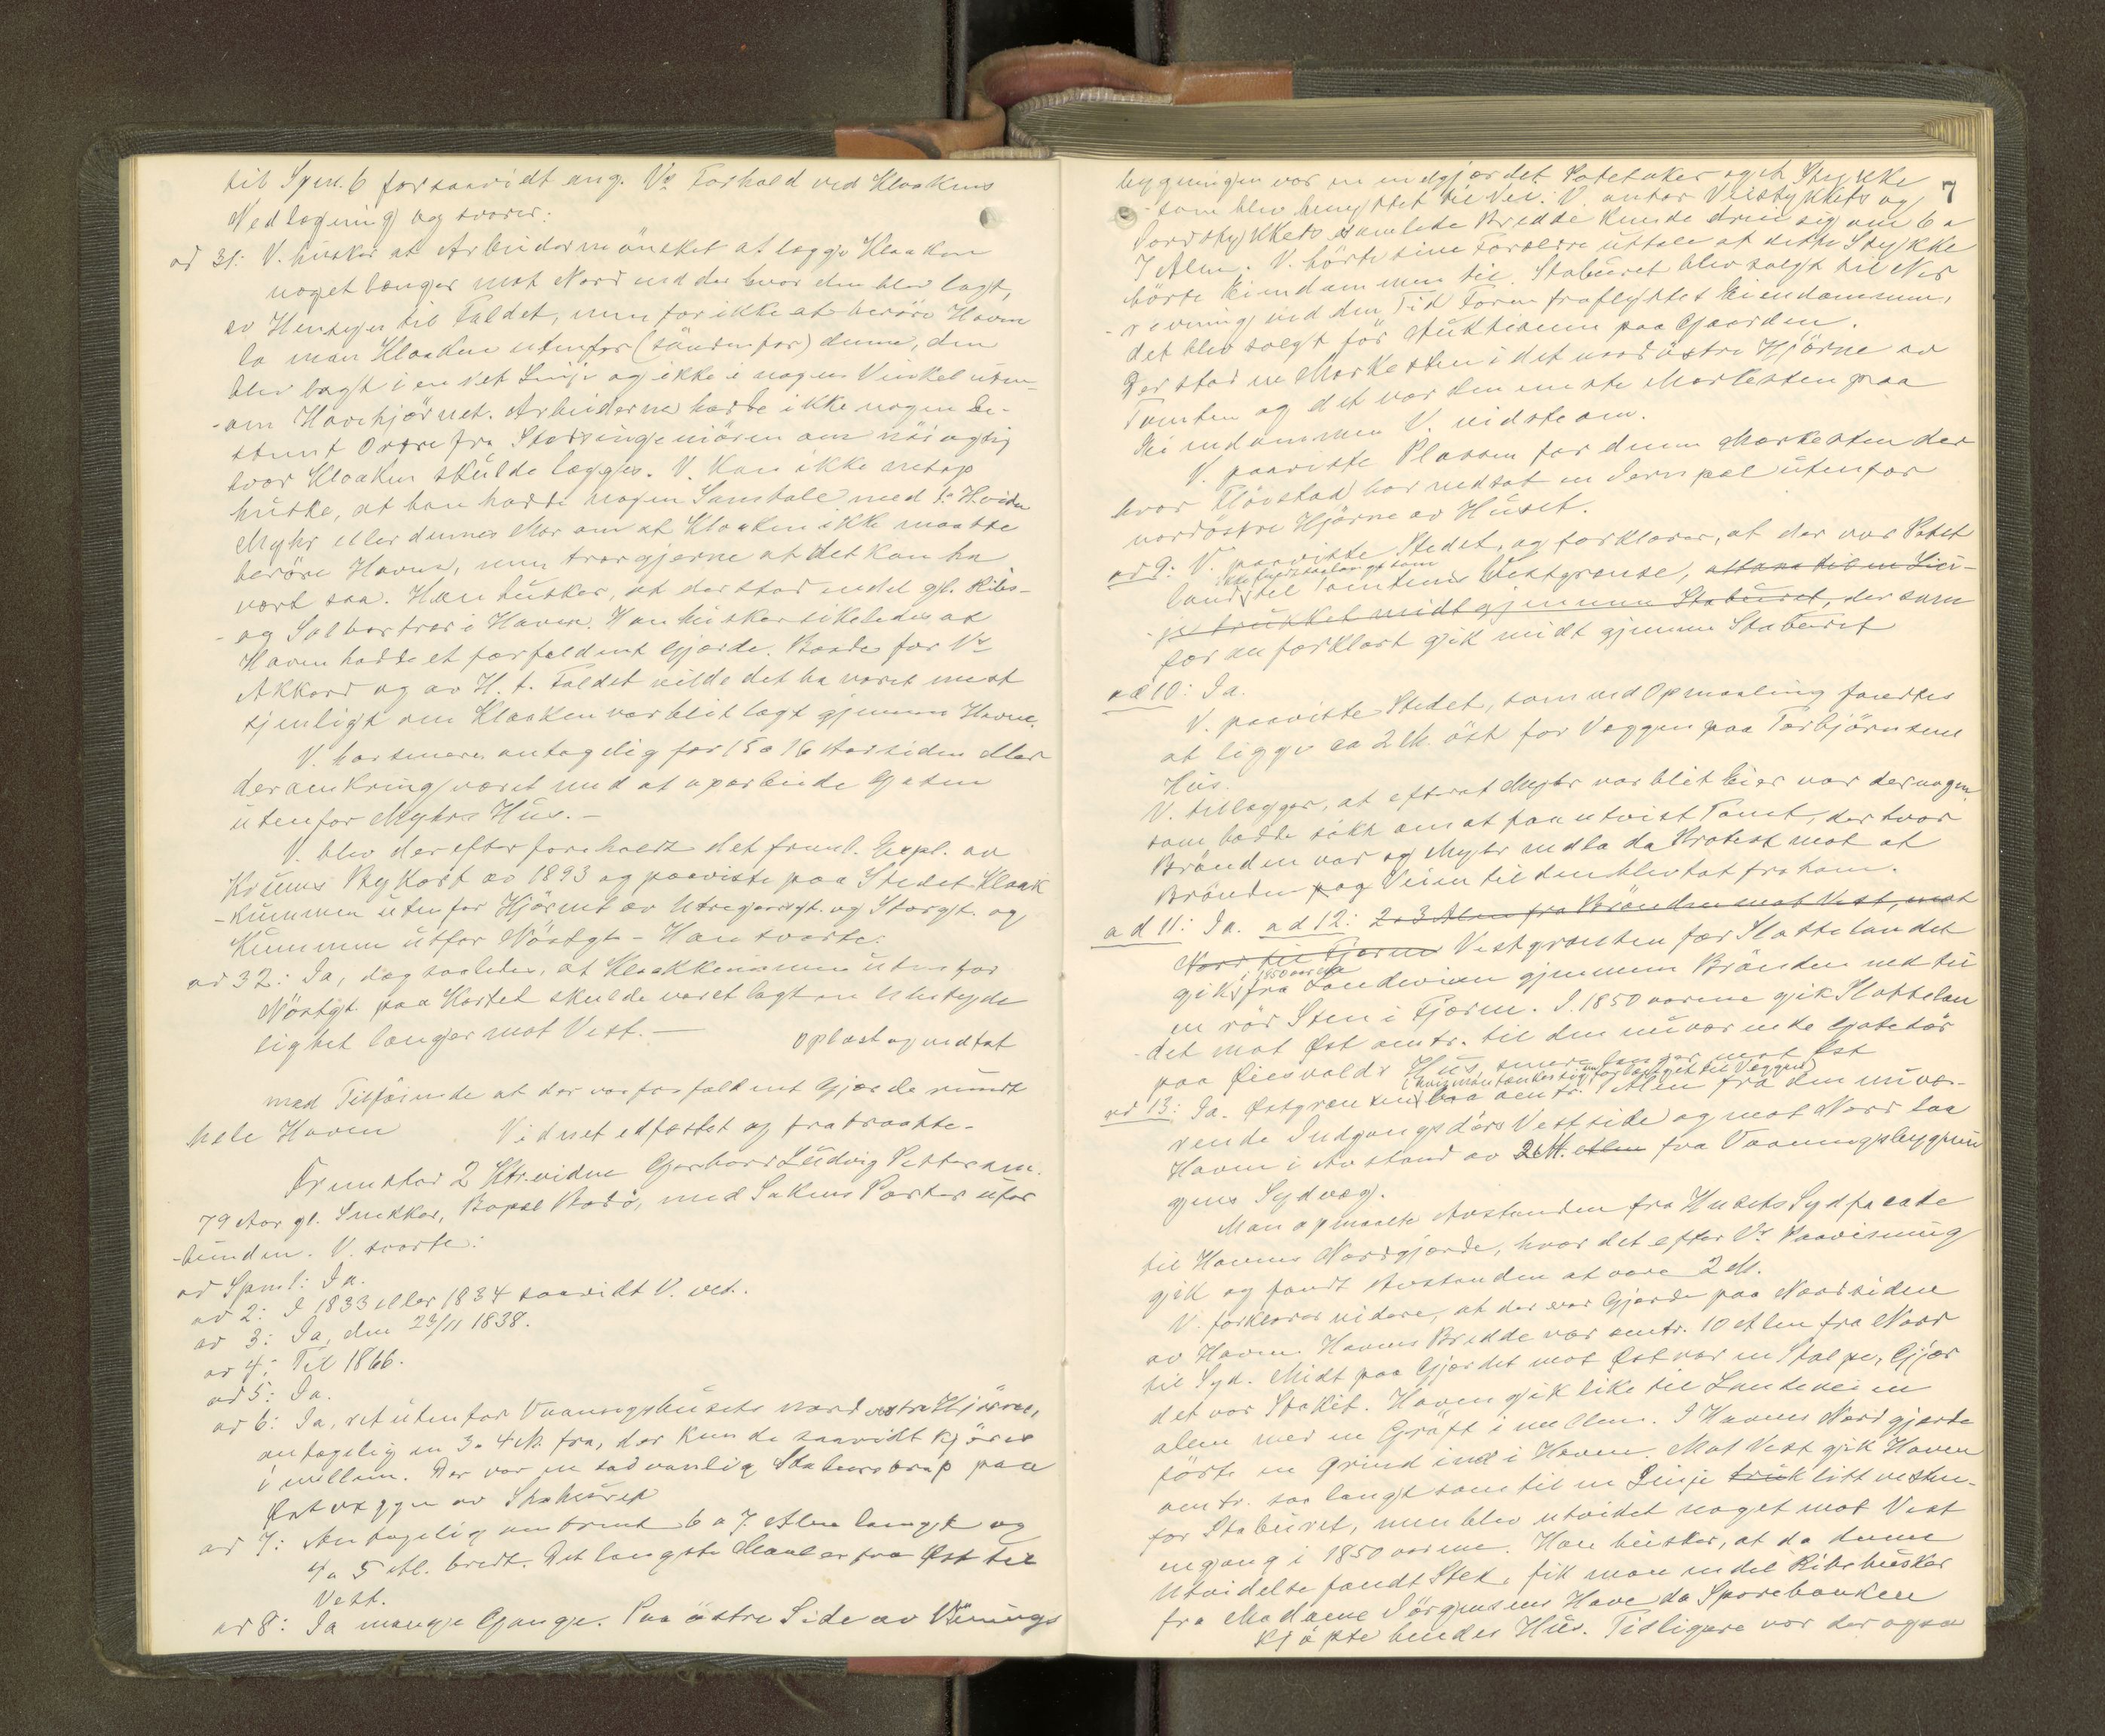 til Spm. 6 forsaavidt ang. V.s Forhold ved Kloakens
Nedlægning og svarer:
ad 31: V. husker at Arbeiderne önsket at lægge Kloaken
noget længer mot Nord end der hvor den blev lagt,
av Hensyn til Faldet, men for ikke at beröre Haven
la man Kloaken utenfor (söndenfor) denne, den
blev lagt i en ret Linje og ikke i nogen Vinkel uten-
-om Havehjörnet. Arbeiderne hadde ikke nogen be-
stemt Ordre fra Stadsingeniören om nöiagtig
hvor Kloaken skulde lægges. V. kan ikke netop
huske, at han hadde nogen Samtale med
Myhr eller dennes Mor om at Kloaken ikke maatte
beröre Haven, men tror gjerne at det kan ha
vært saa. Han husker, at der stod endel gl. Ribs-
- og Solbærtrær i Haven. Han husker likeledes at
Haven hadde et forfaldent Gjærde. Baade for V.s
Akkord og av H. t. Faldet vilde det ha været mest
tjenligt om Kloaken var blit lagt gjennem Haven.
V. har senere antagelig for 15 a 16 Aar siden eller
deromkring været med at oparbeide Gaten
utenfor Myhrs Hus. –
V. blev derefter foreholdt det freml. Expl. av
Krums Bykart av 1893 og paaviste paa Stedet Kloak
-kummen utenfor Hjörnet av og Storgt. og
Kummen utfor Nöstgt – Han svarte:
ad 32: Ja, dog saaledes, at Kloakkummen utenfor
Nöstgt. paa Kartet skulde været lagt en Ubetyde
lighet længer mot Vest. —
Oplæst og vedtat
med Tilföiende at der var forfaldent Gjærde rundt
hele Haven Vidnet edfæstet og fratraadte.
Fremstod 2 Str.vidne Gerhard Ludvig Pettersen.
79 Aar gl. Snekker, Bopæl Bodö, med Sakens Parter ufor
-bunden. V. svarte:
ad Spm 1: Ja.
ad 2: I 1833 eller 1834 saavidt V. vet.
ad 3: Ja, den 23/11 1838.
ad 4: Til 1866.
ad 5: Ja.
ad 6: Ja, ret utenfor Vaaningshusets nordvestre Hjörne,
antagelig en 3 a 4 M. fra, der kunde saavidt kjöres
imellem. Der var en sedvanlig Staburstrap paa
Østvæggen av Staburet
ad 7: Antagelig omtrent 6 a 7 Alen langt og
4 a 5 Al. bredt. Det længste Maal er fra Øst til
Vest.
ad 8: Ja mange Gange. Paa östre Side av Vånings
7
bygningen var en indgjærdet Potetaker og et Stykke
som blev benyttet til Vei. V. antar Veistykkets og
Jordstykkets samlede Bredde kunde dreie sig om 6 a
7 Alen. V. hörte sine Forældre uttale at dette Stykke
hörte Eiendommen til. Staburet blev solgt til Ned
- rivning ved den Tid Faren fraflyttet Eiendommen,
det blev solgt för Auktionen paa Gaarden.
Der stod en Merkesten i det nordöstre Hjörne av
Tomten og det var den eneste Merkesten paa
Eiendommen V. vidste om.
V. paaviste Plassen for denne Merkesten der
hvor Flövstad har nedsat en Jernpæl utenfor
nordöstre Hjörne av Huset.
ad 9: V. paaviste Stedet, og forklarer, at der var Potet
ikke fuldt saalangt som
land til Tomtens Vestgrense, altsaa til en Lin-
je trukket midt gjennem Staburet, der som
för en forklart gik midt gjennem Staburet
ad 10: Ja.
V. paaviste Stedet, som ved Opmaaling fandtes
at ligge ca 2 M. öst for Væggen paa Torbjörnsens
Hus.
V. tillægger, at efterat Myhr var blit Eier var der nogen
som hadde sökt om at faa utvist Tomt, der hvor
Brönden var og Myhr nedla da Protest mot at
Brönden og Veien til den blev tat fra ham.
ad 11: Ja. ad 12: 2 a 3 Alen fra Brönden mot Vest, mot
Nord til Fjæren Vestgrænsen for Slottelandet
i 1850 aarene
gik fra Landeveien gjennem Brönden ned til
en rör Sten i Fjæren. I 1850 aarene gik Slottelan
- det mot Øst omtr. til den nuværende Gatedör
paa Eiesvolds Hus, senere længer mot Øst
ad 13: Ja. Østgrænsen laa omtr. 1 Alen fra den nuvæ-
rende Indgangsdörs Vestside og mot Nord laa
Haven i Avstand av 2 M. Alen fra Vaaningsbygnin
gens Sydvæg.
Man opmaalte Avstanden fra Husets Sydfacade
til Havens Nordgjærde, hvor det efter V.s Paavisning
gik og fandt Avstanden at være 2 M.
V. forklarer videre, at der var Gjærde paa Nordsiden
av Haven. Havens Bredde var omtr. 10 Alen fra Nord
til Syd. Midt paa Gjærdet mot Øst var en Stolpe, Gjær
det var Stakit. Haven gik like til Landeveien
alene med en Gröft imellem. I Havens Nordgjærde
förte en Grind ind i Haven. Mot Vest gik Haven
omtr. saa langt som til en Linje truk litt vesten-
for Staburet, men blev utvidet noget mot Vest
engang i 1850 aarene. Han husker, at da denne
Utvidelse fandt Sted, fik man endel Ribsbusker
fra Madame Jörgensens Have da Sparebanken
kjöpte hendes Hus. Tidligere var der ogsaa